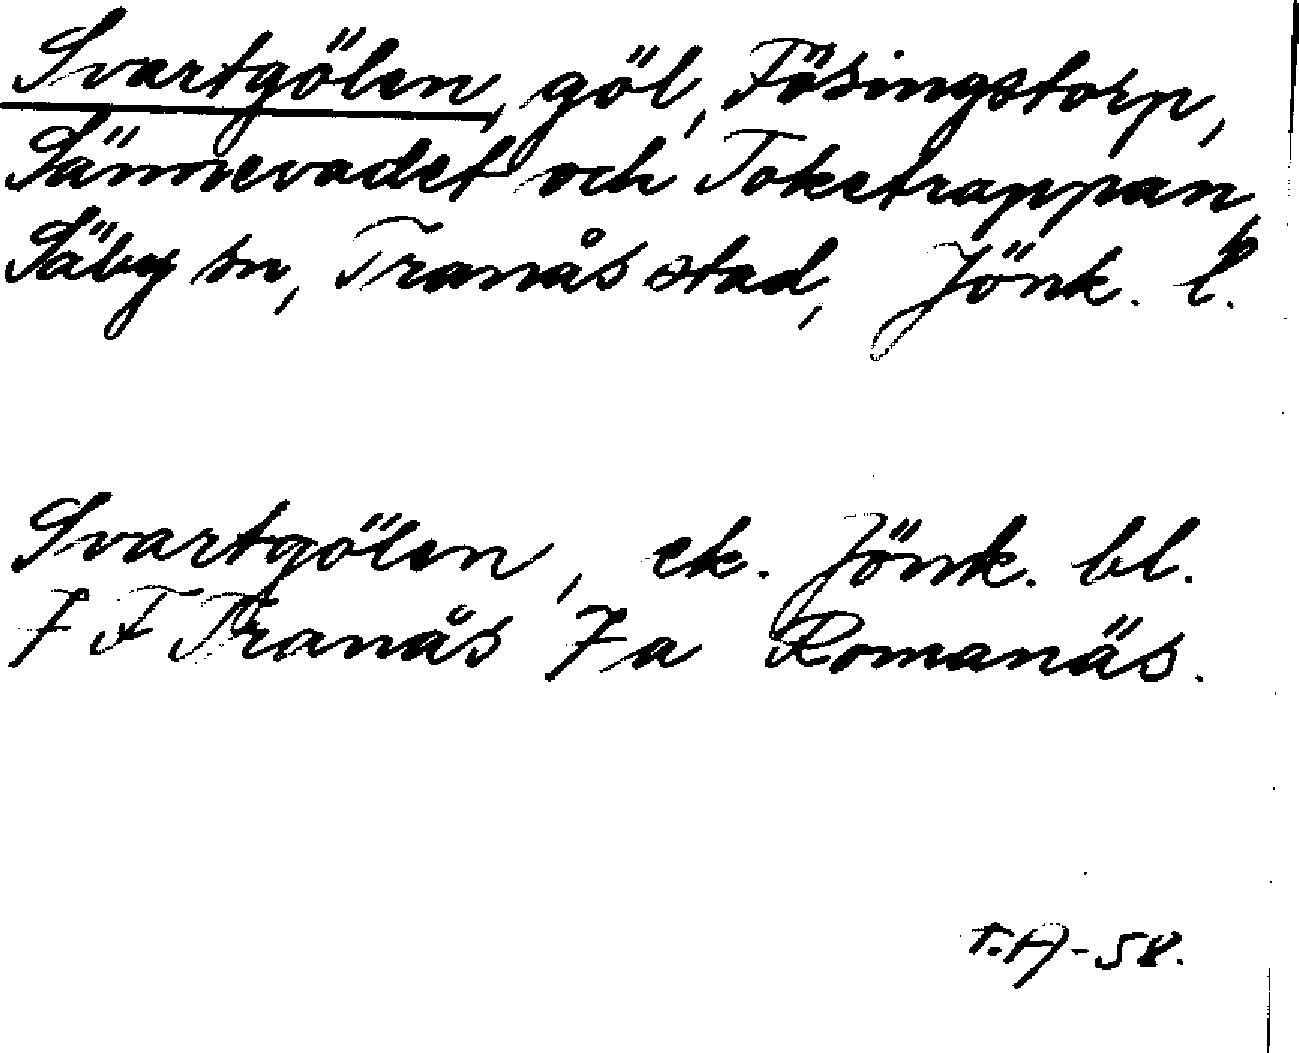 Svartgölen, göl, Fösingstorp,
Sännevadet och Toketrappan,
Säby sn, Tranås stad, Jönk. l.
Svartgölen, ek. Jönk. bl.
7 F Tranås 7 a Romanäs.
T.A-58.